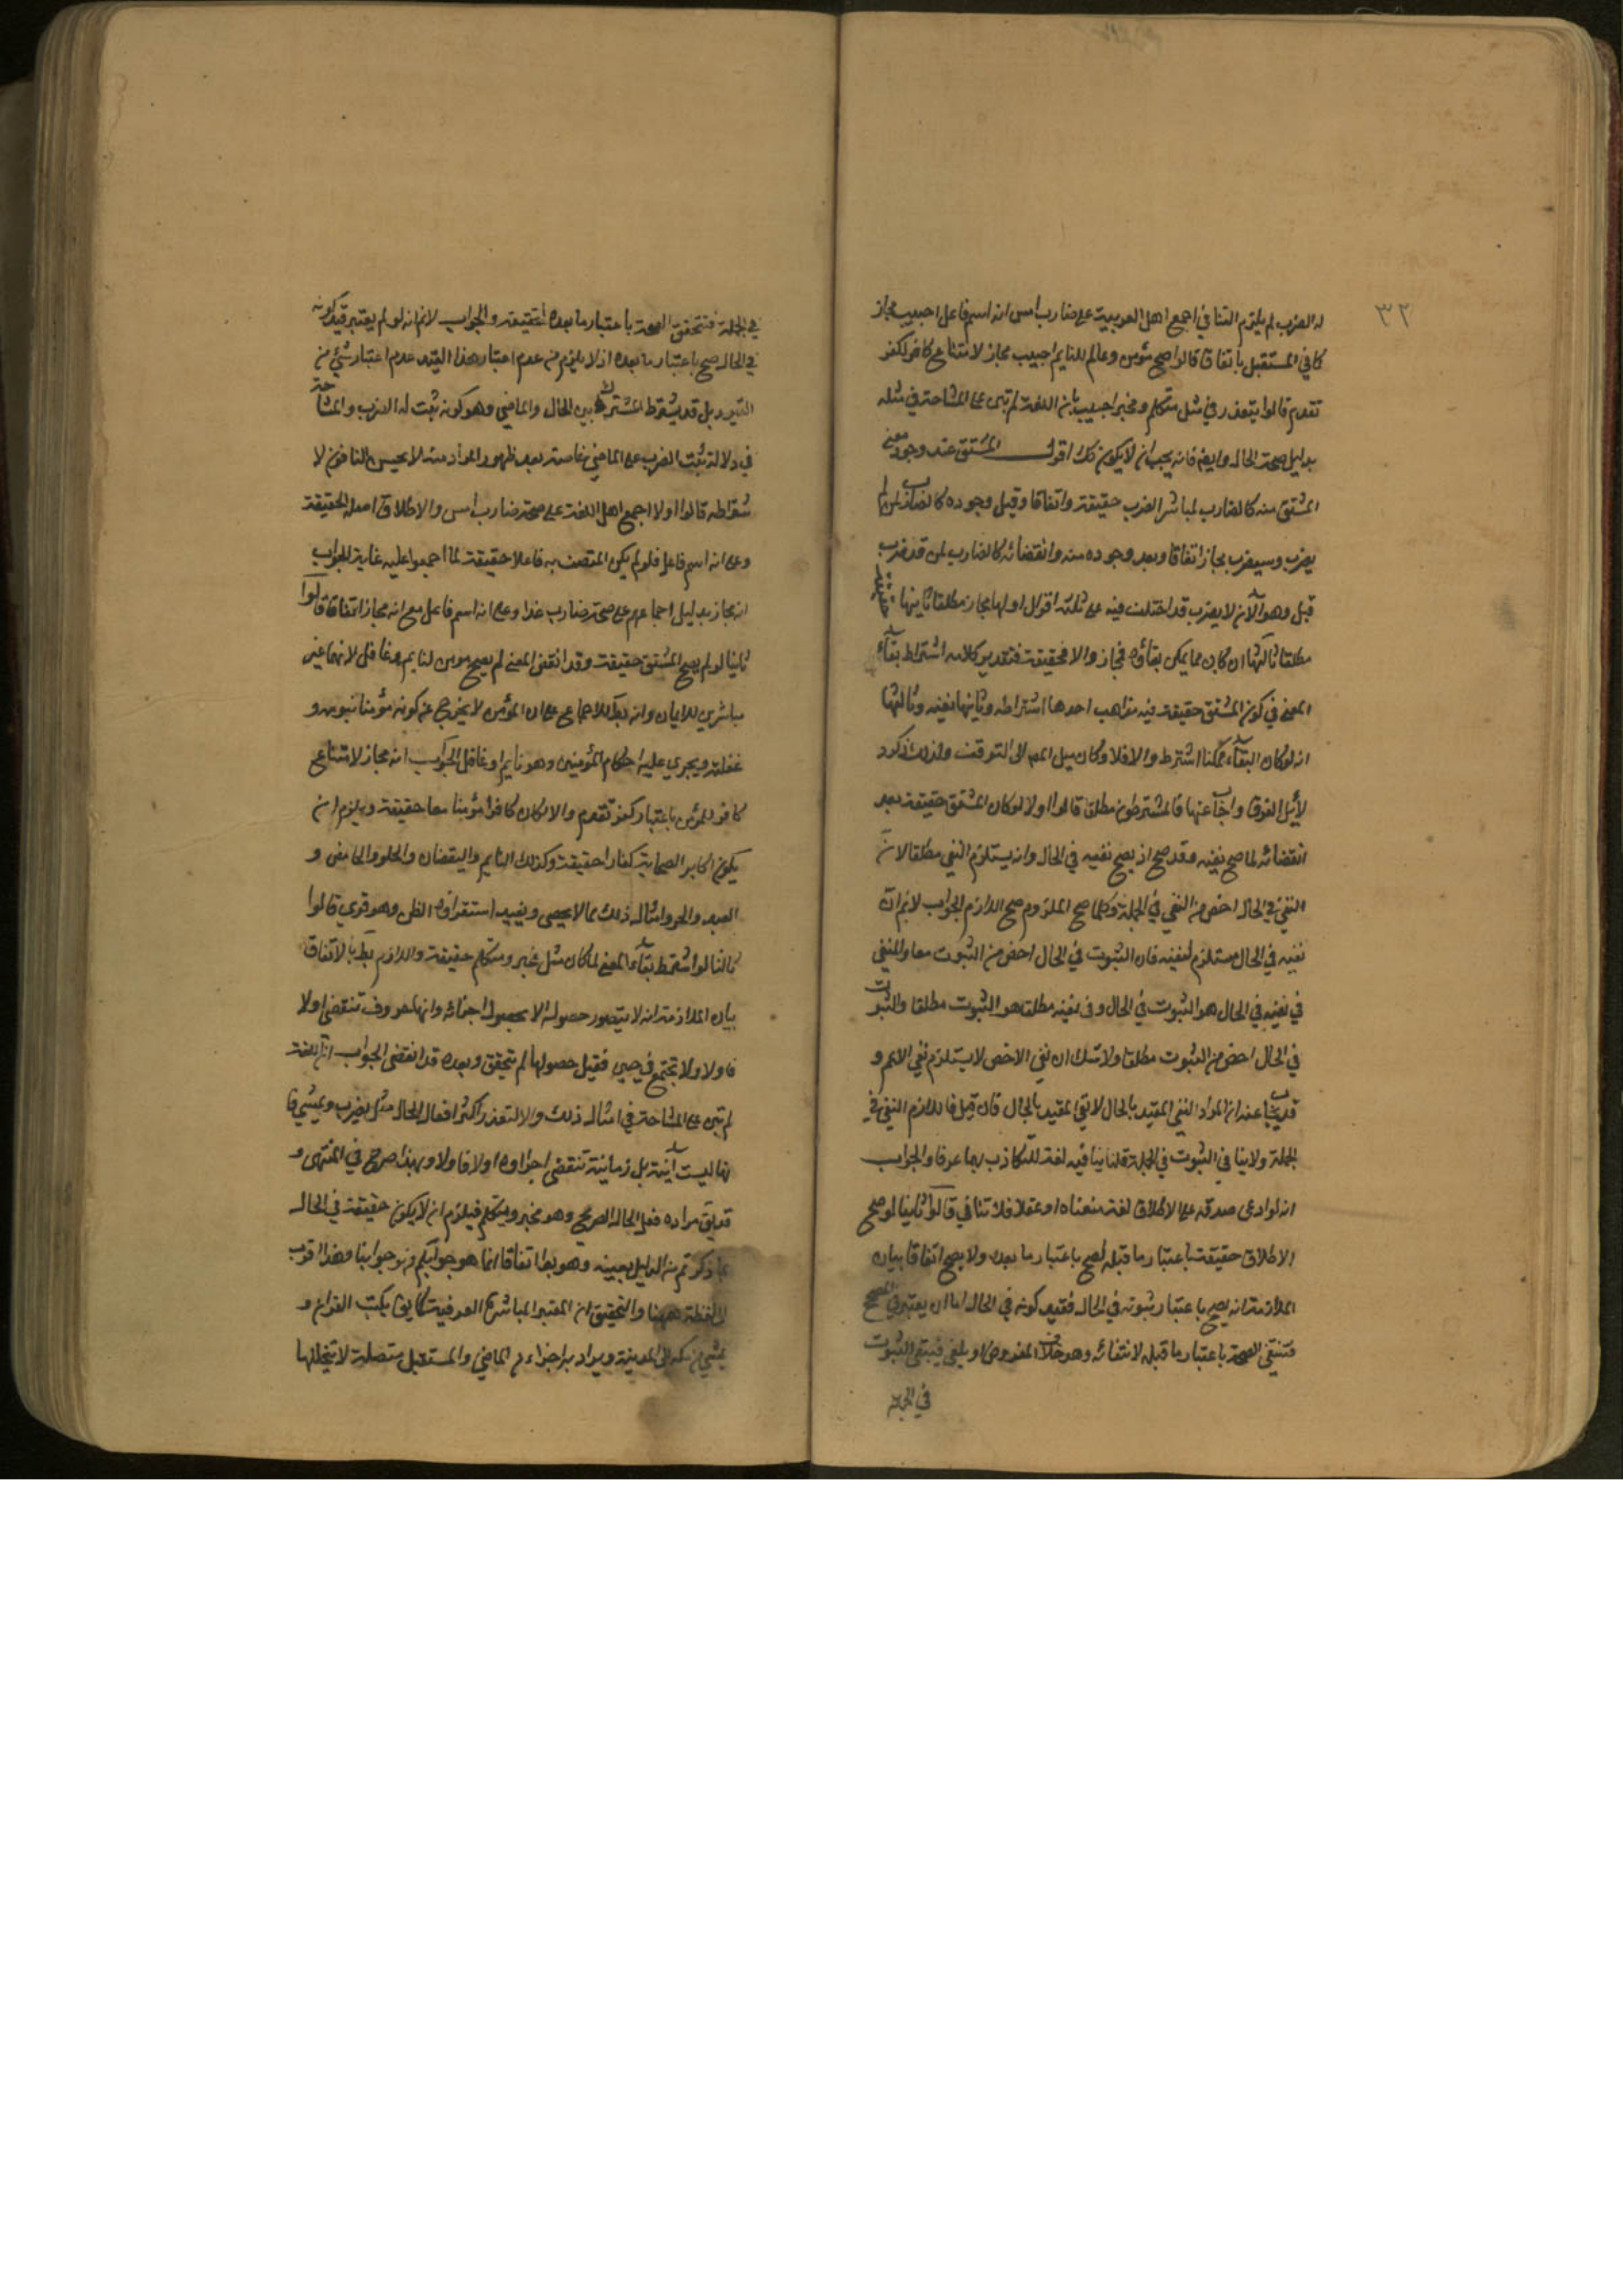 ٣٢
له الضرب لم يلزم التنافي اجمع اهل العربية على ضارب امس انه اسم فاعل اجيب مجاز
كما في المستقبل باتفاق قالوا صح مؤمن وعالم للنايم اجيب مجاز لامتناع كافر لكفر
تقدم قالوا يتعذر في مثل متكلم ومخبر اجيب بان اللغة لم تبن على المشاحة في مثله
بدليل صحة الحال وايضا فانه يجب ان لا يكون كذلك اقول المشتق عند وجود معنى
المشتق منه كالضارب لمباشر الضرب حقيقة واتفاقا وقبل وجوده كالضارب لمن لم
يضرب وسيضرب مجاز اتفاقا وبعد وجوده منه وانقضائه كالضارب لمن قد ضرب
قبل وهو الآن لا يضرب قد اختلف فيه على ثلثة اقوال اولها مجاز مطلقا ثانيها حقيقة
مطلقا ثالثها ان كان مما يمكن بقاؤه فمجاز والا فحقيقة فتقدير كلامه اشتراط بقآء
المعنى في كون المشتق حقيقة فيه مذاهب احدها اشتراطه وثانيها نفيه وثالثها
انه لو كان البقآء ممكنا اشترط والا فلا وكان ميل المص الى التوقف ولذلك ذكر د
لايل الفرق واجاب عنها فالمشترطون مطلقا قالوا اولا لو كان المشتق حقيقة بعد
انقضائه لما صح نفيه وقد صح اذ يصح نفيه في الحال وانه يستلزم النفي مطلقا لان
النفي في الحال اخص من النفي في الجملة وكلما صح الملزوم صح اللازم الجواب لانم ان
نفيه في الحال مستلزم لنفيه فان الثبوت في الحال اخص من الثبوت معا والمنفي
في نفيه في الحال هو الثبوت في الحال وفي نفيه مطلقا هو الثبوت مطلقا والثبوت
في الحال اخص من الثبوت مطلقا ولا شك ان نفي الاخص لا يستلزم نفي الاعم و
قد يجاب عنه ان المراد النفي المقيد بالحال لا نفي المقيد بالحال فان قيل فاللازم النفي في
الجملة ولا ينافي الثبوت في الجملة قلنا ينافيه لغة للتكاذب بهما عرفا والجواب
انه لو ادعى صدقه على الاطلاق لغة منعناه او عقلا فلا تنافي قالوا ثانيا لو صح
الاطلاق حقيقة باعتبار ما قبله لصح باعتبار ما بعده ولا يصح اتفاقا بيان
الملازمة انه يصح باعتبار ثبوته في الحال فقيد كونه في الحال اما ان يعتبر في المصحح
فتنتفي الصحة باعتبار ما قبله لانتفائه وهو خلاف المفروض او يلغى فيبقى الثبوت
في الجملة
في الجملة فتتحقق الصحة باعتبار ما بعده حقيقة والجواب لانم انه لو لم يعتبر قيد كونه
في الحال صح باعتبار ما بعده اذ لا يلزم من عدم اعتبار هذا القيد عدم اعتبار شئ من
القيود بل قد يشترط المشترك بين الحال والماضي وهو كونه ثبت له الضرب والمشاحة
في دلالة ثبت الضرب على الماضي خاصة بعد ظهور المراد منه لا يحسن النافون لا
شتراطه قالوا اولا اجمع اهل اللغة على صحة ضارب امس والاطلاق اصله الحقيقة
وعلى انه اسم فاعل فلو لم يكن المتصف به فاعلا حقيقة لما اجمعوا عليه عادة الجواب
انه مجاز بدليل اجماعهم على صحة ضارب غدا وعلى انه اسم فاعل مع انه مجاز اتفاقا قالوا
ثانيا لو لم يصح المشتق حقيقة وقد انقضى المعنى لم يصح مومن لنايم وغافل لانهما غير
مباشرين للايمان وانه بط للاجماع على ان المؤمن لا يخرج عن كونه مؤمنا بنومه و
غفلته ويجري عليه احكام المؤمنين وهو نايم او غافل الجواب انه مجاز لامتناع
كافر للمؤمن باعتبار كفر تقدم والا لكان كافرا مؤمنا معا حقيقة ويلزم ان
يكون اكابر الصحابة كفارا حقيقة وكذلك النايم واليقضان والحلو والحامض و
العبد والحر وامثال ذلك مما لا يحصى ويفيد استقراؤه الظن وهو قوي قالوا
ثالثا لو اشترط بقآء المعنى لما كان مثل مخبر ومتكلم حقيقة واللازم بط بالاتفاق
بيان الملازمة انه لا يتصور حصوله الا بحصول اجزائه وانها حروف تنقضي اولا
فاولا ولا تجتمع في حين فقبل حصولها لم يتحقق وبعده قد انقضى الجواب ان اللغة
لم تبن على المشاحة في امثال ذلك والا لتعذر اكثر افعال الحال مثل يضرب ويمشي فا
نها ليست آنية بل زمانية تنقضي اجزاؤه اولا فاولا وبهذا صرح في المنتهى و
قد يق مراده فعل الحال الصريح وهو يخبر ويتكلم فيلزم ان لا يكون حقيقة في الحال
بما ذكرتم من الدليل بعينه وهو بط اتفاقا فما هو جوابكم فهو جوابنا وهذا اقرب
للفظة ههنا والتحقيق ان المعتبر المباشرة العرفية كما يق يكتب القران و
يمشي من مكة الى المدينة ويراد به اجزاء من الماضي والمستقبل متصلة لا يتخللها